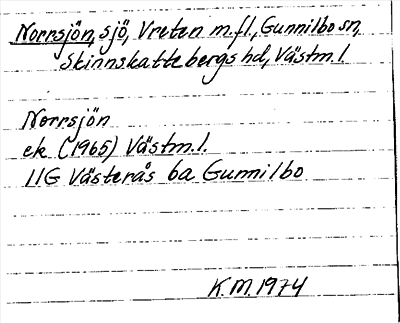 Norrsjön, sjö, Vreten m.fl., Gunnilbo sn,
Skinnskattebergs hd, Västm.l.
Norrsjön
ek (1965) Västm.l.
11G Västerås 6a Gunnilbo
K.M. 1974